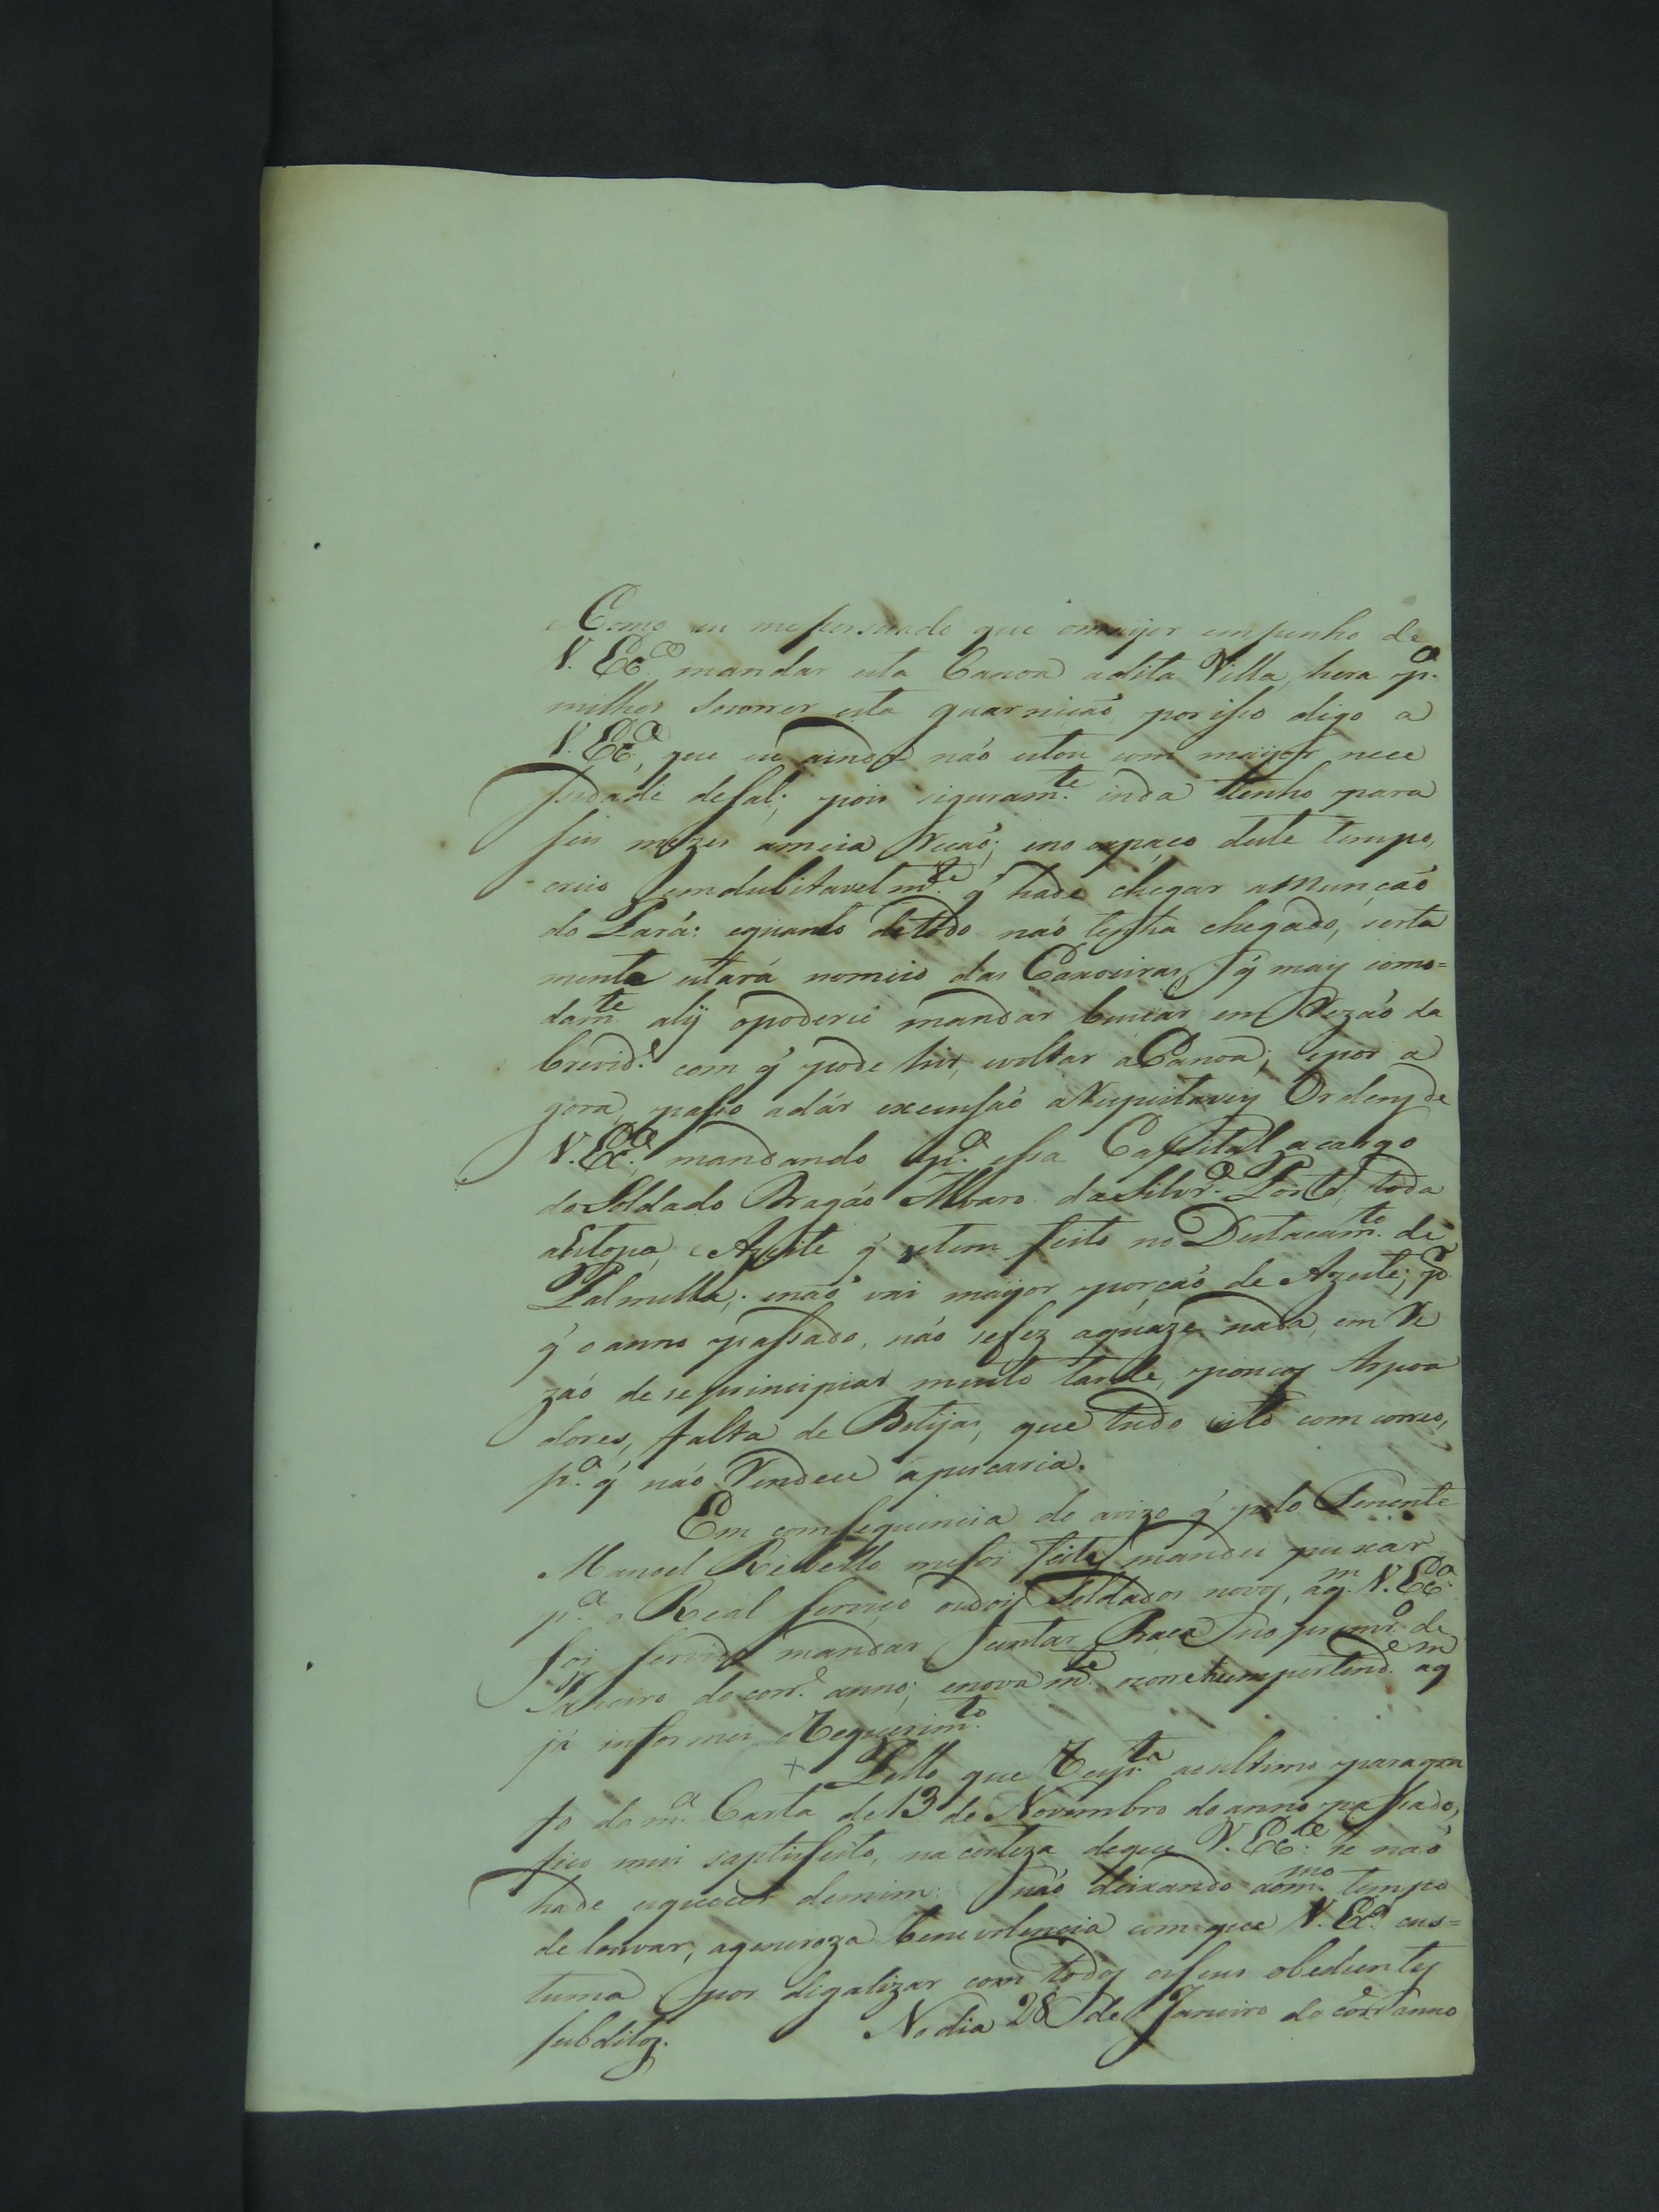 Como eu mepersuado que omayor empenho de
V. Exc.ª mandar esta Canoa adita Villa, hera p.ª
milhor Socorrer esta guarnicaõ, por isso digo a
V. Exc.ª, que eu ainda naõ estou com mayor nece
sidade deSal; pois siguram.te inda tenho para
seis mezes ameia Racaõ; eno espaço deste tempo,
creio Jendubitavelm.te q̃ hade chegar amunçaõ
do Pará: equando detodo naõ tenha chegado, serta
mente estará nomeio das Caxoeiras, q̃ may como=
dam.te alÿ opoderei mandar buscar em Rezaõ da
brevid.e com q̃ pode hir, evoltar aCanoa; epor a
gora, passo adár execussaõ aRespeitaveiy Ordeny de
V. Exc.ª, mandando p.ª essa Cappital acargo
do Soldado Dragaõ Alvaro daSilvr.ª Porto, toda
aEstopa, eAzeite q̃ setem feito no Destacam.to de
Palmella; enaõ vai mayor porçaõ de Azeite; p.r
q̃ o anno passado, naõ sefez aquaze nada, em Re
zaõ de seprincipiar muito tarde, poucos Arpoa
dores, falta de Botijas, que tudo isto comcorreo,
p.ª q̃ naõ Rendece apescaria.
Em comsequencia do avizo q̃ pelo Tenente
Manoel Rebello mefoi feito mandei puxar
p.ª o Real servico osdois Soldados novos, aq.m V. Exc.ª
foi servido mandar Sentar Praca no primr.o de
Janeiro do corr.e anno; enovam.te
já informei oRequerim.to
Pello que Resp.ta aoultimo paragra
fo dam.ª Carta de 13 de Novembro doanno passado,
fico mui saptisfeito, na certeza deque V. Exc.ª se naõ
hade esquecer demim: naõ deixando aom.mo tempo
de louvar, ageneroza benevolencia com que V. Exc.ª cus=
tuma por ligalizar com todos osseus obedientes
subditos. No dia 28 de Janeiro do corr.e anno